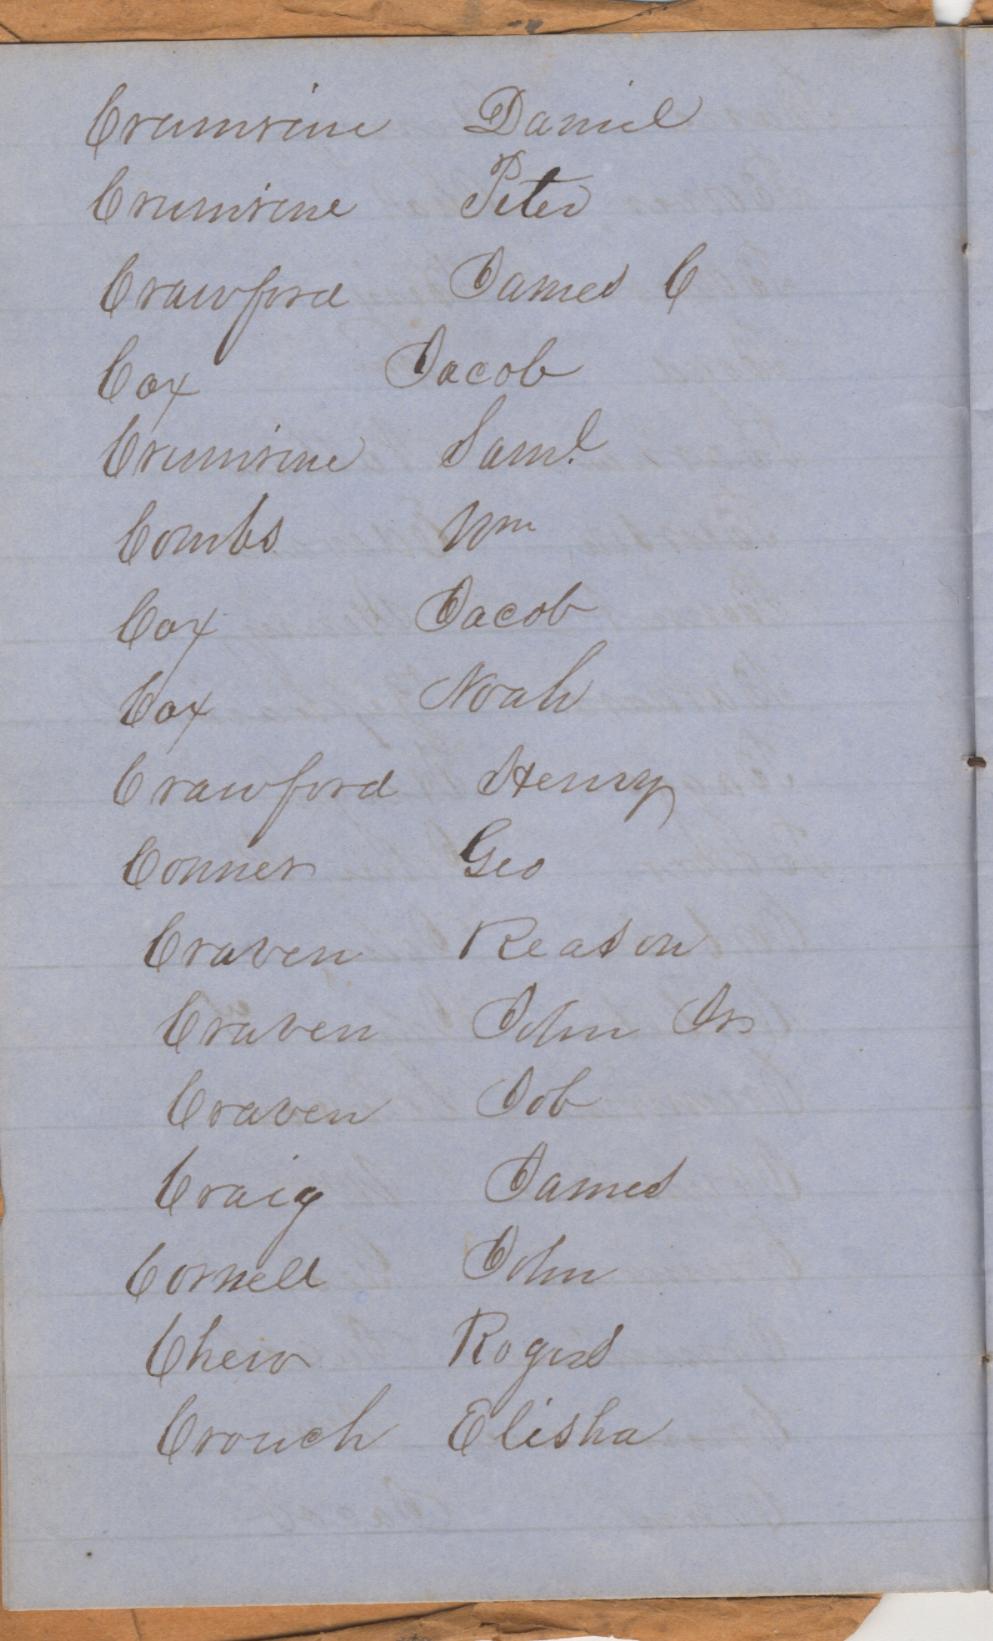 Crumrine Daniel
Crumrine Peter
Crawford James C
Cox Jacob
Crumrine Saml
Combs Wm
Cox Jacob
Cox Noah
Crawford Henry
Conner Geo
Craven Reason
Craven John Jr
Craven Job
Craig James
Cornell John
Chew Rogers
Crouch Elisha